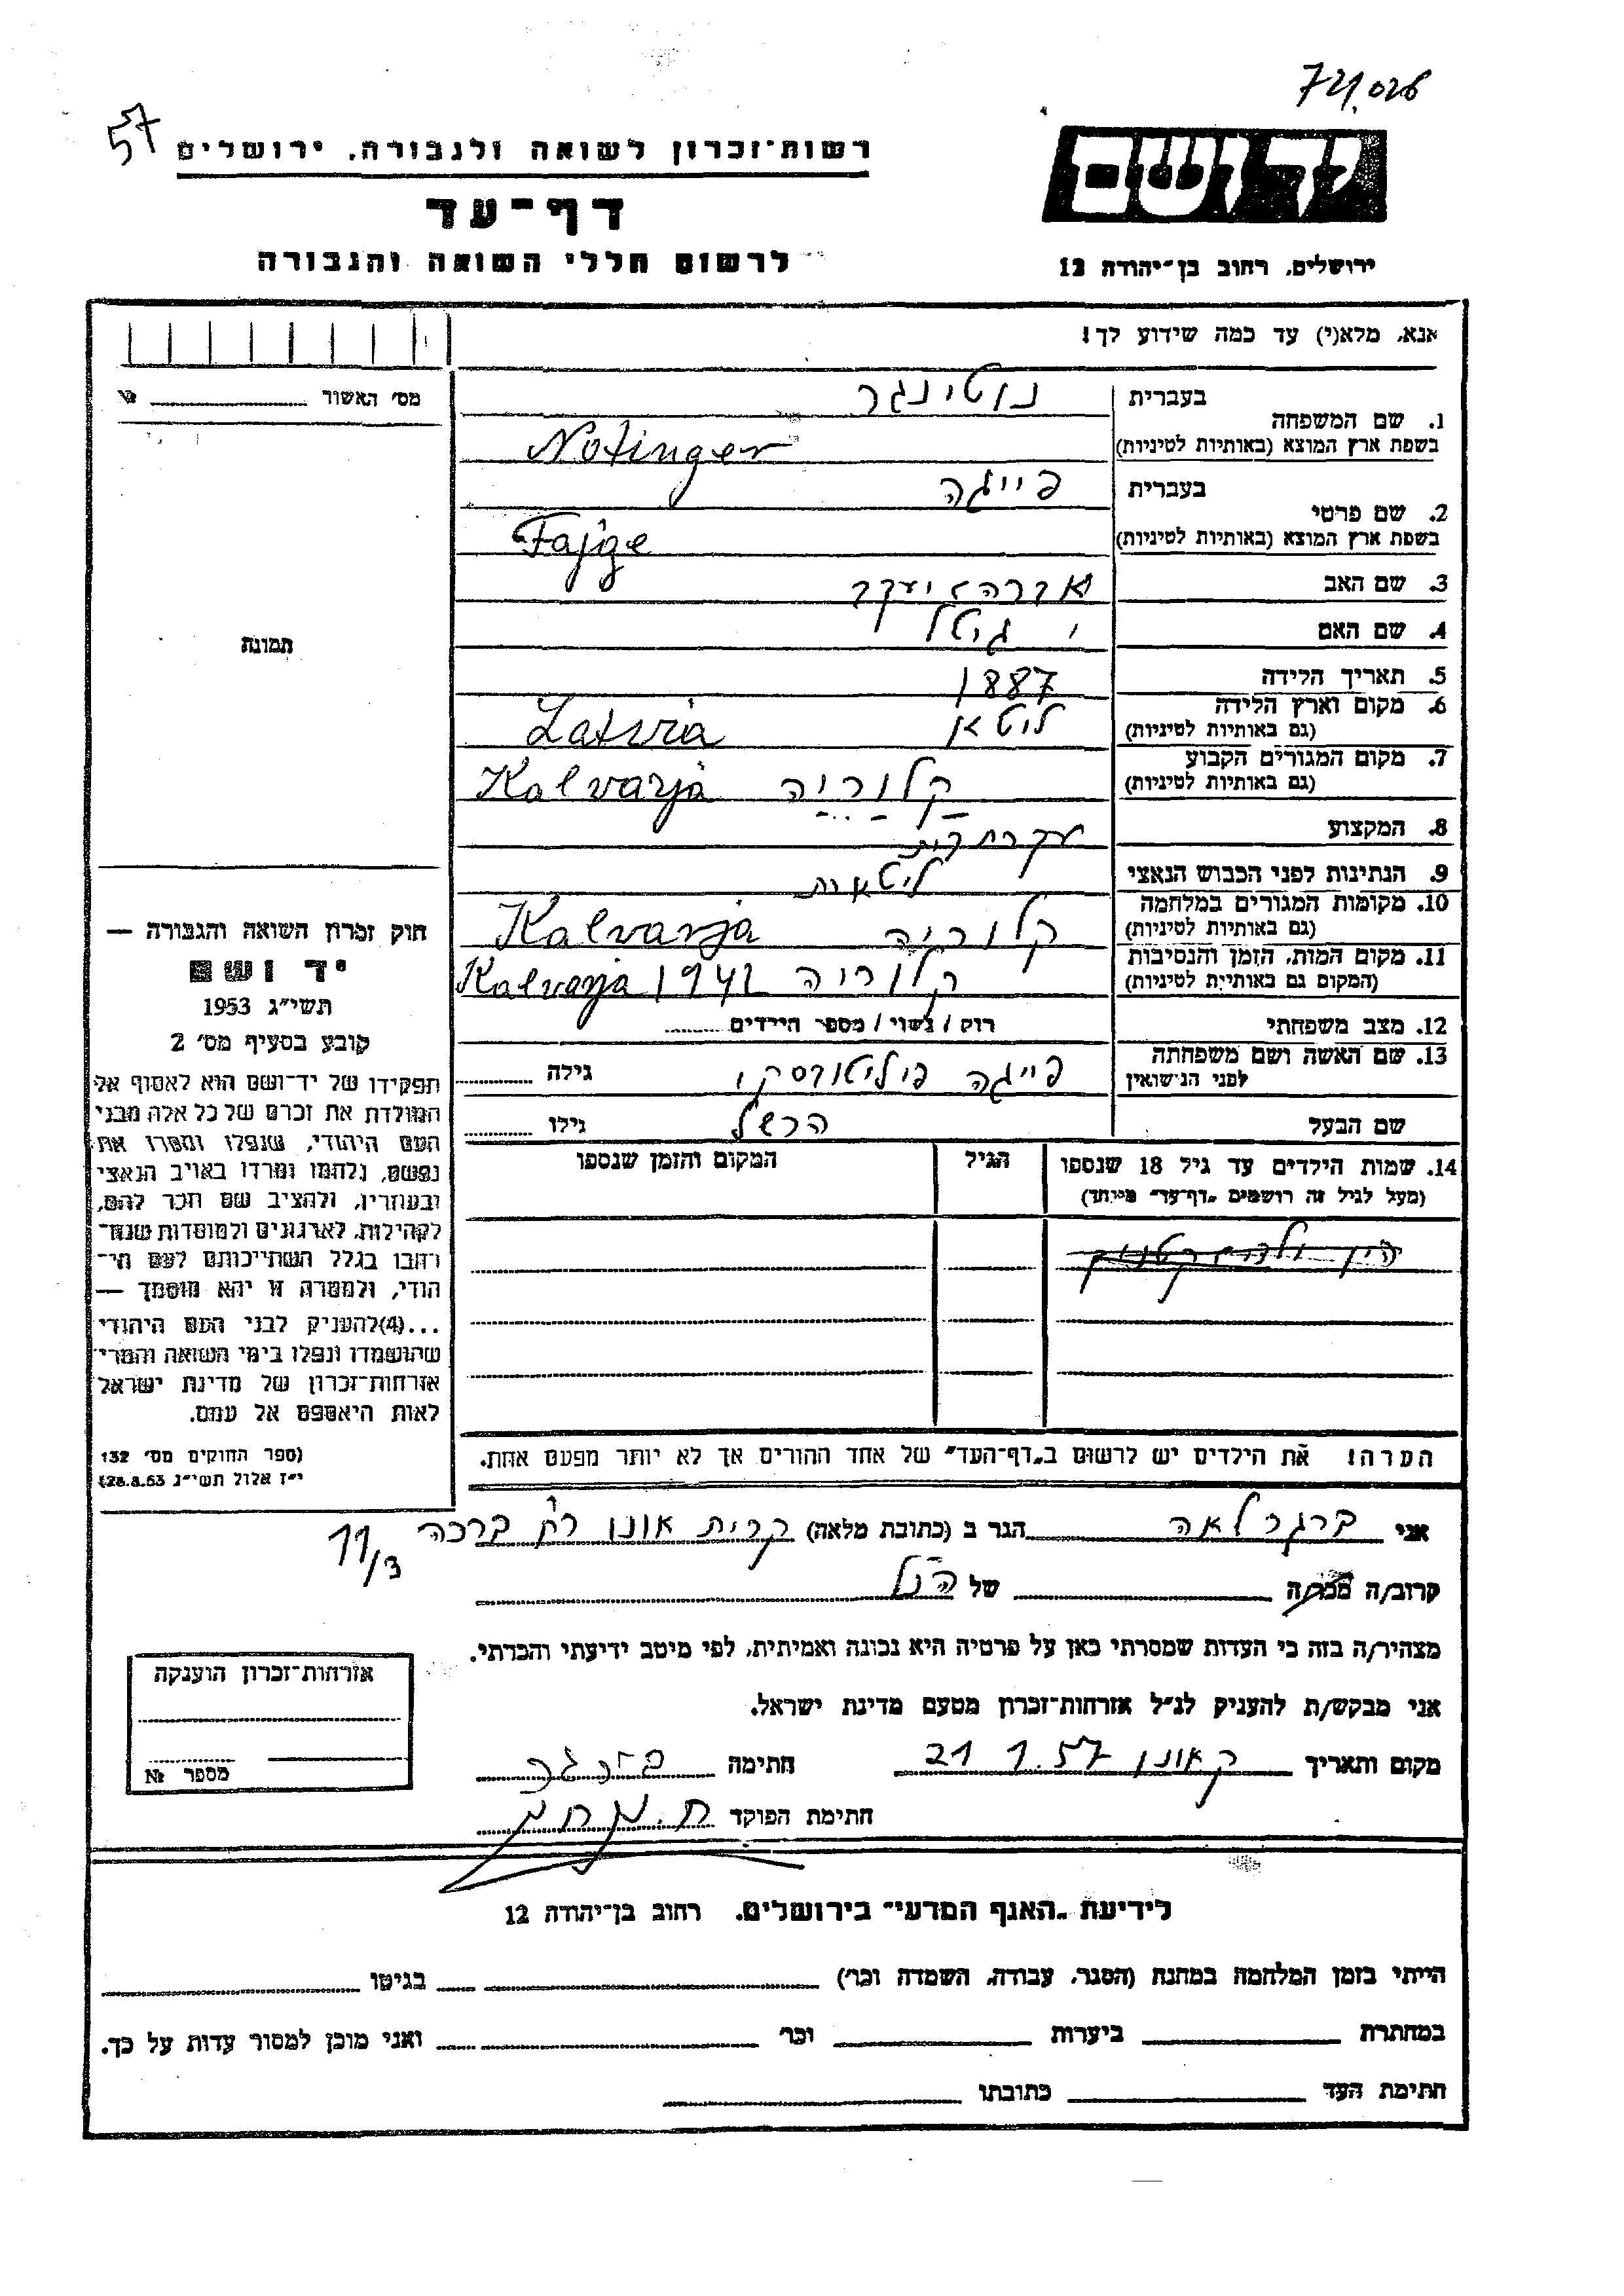 724.026
57
רשות־זכרון לשואה ולגבורה, ירושלים
דף־עד
לרשום חללי השואה והגבורה
יד ושם
ירושלים, רחוב בן־יהודה 12
אנא, מלא(י) עד כמה שידוע לך!
מס׳ האשור
№
1. שם המשפחה
בעברית
נוטינגר
בשפת ארץ המוצא (באותיות לטיניות)
Notinger
2. שם פרטי
בעברית
פייגה
בשפת ארץ המוצא (באותיות לטיניות)
Fajge
3. שם האב
יעקב
4. שם האם
גיטל
5. תאריך הלידה
1887
6. מקום וארץ הלידה
(גם באותיות לטיניות)
ליטא Latvia
7. מקום המגורים הקבוע
(גם באותיות לטיניות)
קלוריה Kalvarja
8. המקצוע
עקרת בית
9. הנתינות לפני הכבוש הנאצי
ליטאית
10. מקומות המגורים במלחמה
(גם באותיות לטיניות)
קלוריה Kalvarja
11. מקום המות, הזמן והנסיבות
(המקום גם באותיות לטיניות)
קלוריה 1941 Kalvarja
12. מצב משפחתי
רוק / נשוי / מספר הילדים
13. שם האשה ושם משפחתה
לפני הנישואין
פייגה פיליטובסקי
גילה
שם הבעל
הרשל
גילו
14. שמות הילדים עד גיל 18 שנספו
(מעל לגיל זה רושמים „דף־עד״ מיוחד)
הגיל
המקום והזמן שנספו
תמונה
חוק זכרון השואה והגבורה —
יד ושם
תשי״ג 1953
קובע בסעיף מס׳ 2
תפקידו של יד־ושם הוא לאסוף אל
המולדת את זכרם של כל אלה מבני
העם היהודי, שנפלו ומסרו את
נפשם, נלחמו ומרדו באויב הנאצי
ובעוזריו, ולהציב שם וזכר להם,
לקהילות, לארגונים ולמוסדות שנח־
רבו בגלל השתייכותם לעם הי־
הודי, ולמטרה זו יהא מוסמך —
...(4)להעניק לבני העם היהודי
שהושמדו ונפלו בימי השואה והמרי־
אזרחות־זכרון של מדינת ישראל
לאות היאספם אל עמם.
(ספר החוקים מס׳ 132
י״ז אלול תשי״ג 28.8.53)
הערה! את הילדים יש לרשום ב„דף־העד״ של אחד ההורים אך לא יותר מפעם אחת.
אני ברגר לאה הגר ב (כתובת מלאה) קרית אונו רח׳ ברכה
11/3
קרוב/ה מכר/ה של הנ״ל
מצהיר/ה בזה כי העדות שמסרתי כאן על פרטיה היא נכונה ואמיתית, לפי מיטב ידיעתי והכרתי.
אני מבקש/ת להעניק לנ״ל אזרחות־זכרון מטעם מדינת ישראל.
מקום ותאריך ק אונו 21 1.57 חתימה ברגר
חתימת הפוקד
אזרחות־זכרון הוענקה
מספר №
לידיעת „האגף המדעי״ בירושלים, רחוב בן־יהודה 12
הייתי בזמן המלחמה במחנה (הסגר, עבודה, השמדה וכו׳) בגיטו
במחתרת ביערות וכו׳ ואני מוכן למסור עדות על כך.
חתימת העד כתובתו